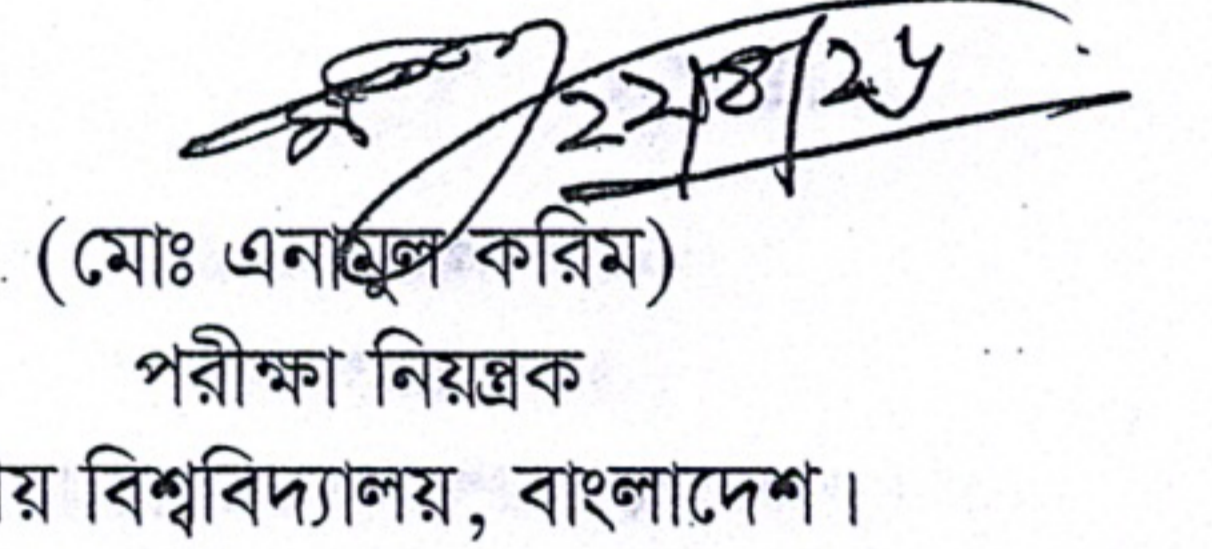 (মোঃ এনামুল করিম)
পরীক্ষা নিয়ন্ত্রক
য় বিশ্ববিদ্যালয়, বাংলাদেশ।